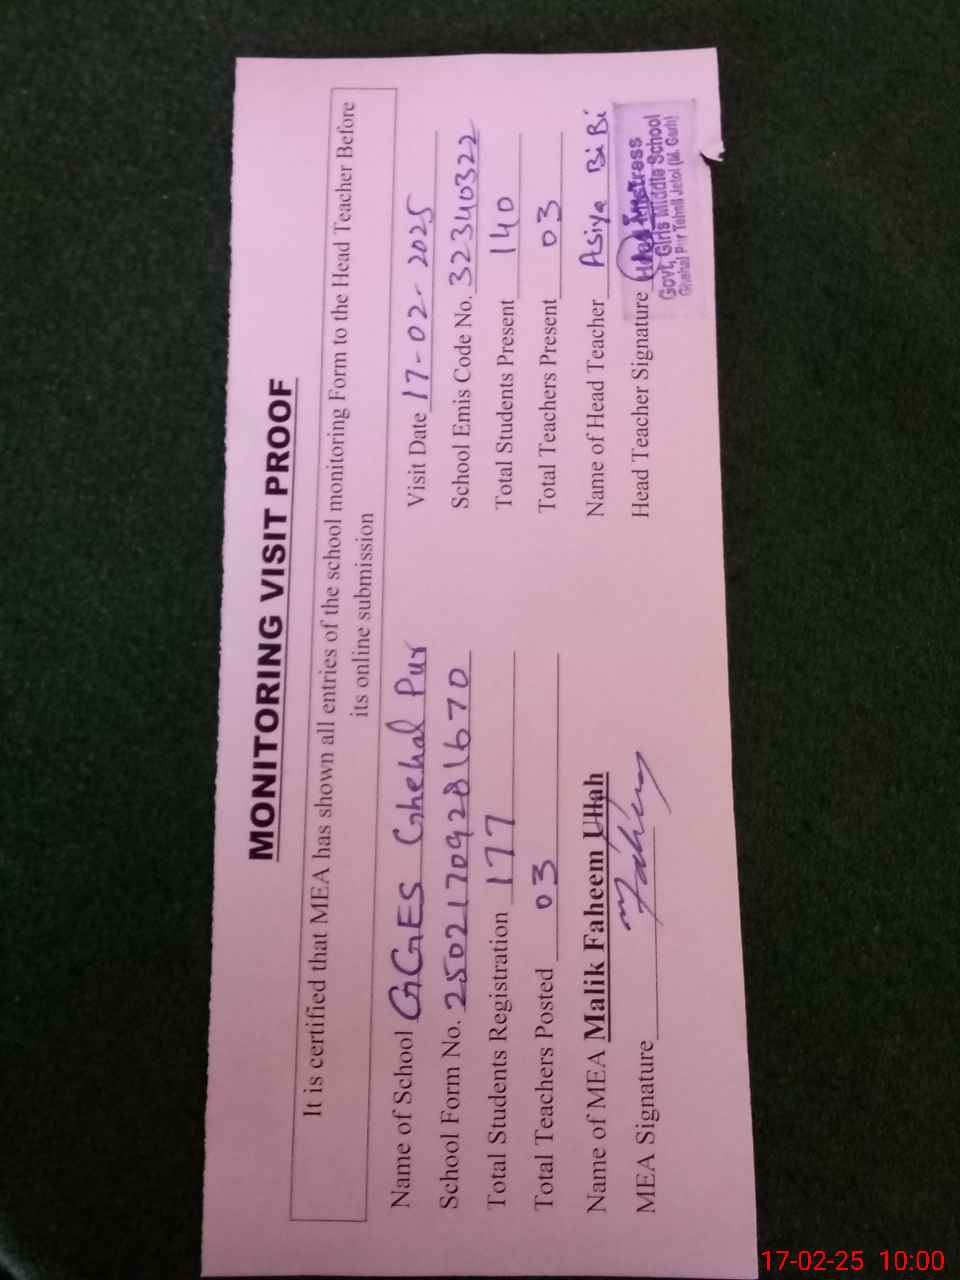 MONITORING VISIT PROOF
It is certified that MEA has shown all entries of the school monitoring Form to the Head Teacher Before
its online submission
Name of School GGES Ghehal Pur Visit Date 17-02-2025
School Form No. 25021709281670 School Emis Code No. 32340322
Total Students Registration 177 Total Students Present 140
Total Teachers Posted 03 Total Teachers Present 03
Name of MEA Malik Faheem Ullah Name of Head Teacher Asiya Bi Bi
MEA Signature Faheem Head Teacher Signature
Head Mistress
Govt, Girls Middle School
Pur Tehsil Jatoi (M. Garh)
17-02-25 10:00